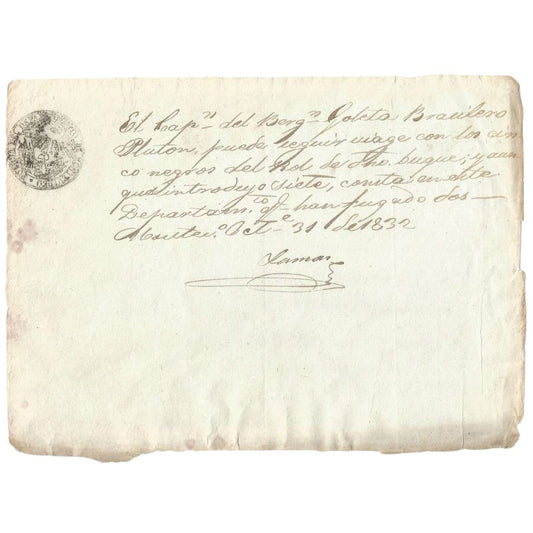 El Cap.n del Berg.n Goleta Brasilero
Pluton, puede seguir viage con los cin
co negros del Rol de dho. buque; y aun
qua introdujo siete, consta en este
Departam.to q.e han fugado dos—
Montev.o Oct.e 31 de 1832
Lamas